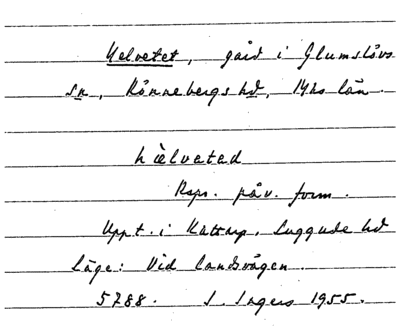 Helvetet, gård i Glumslövs
sn, Rönnebergs hd, Mhs län.
hèlvetad
Rspr. påv. form.
Uppt. i Kattarp, Luggude hd
Läge: Vid landsvägen
5788. S. Ingers 1955.